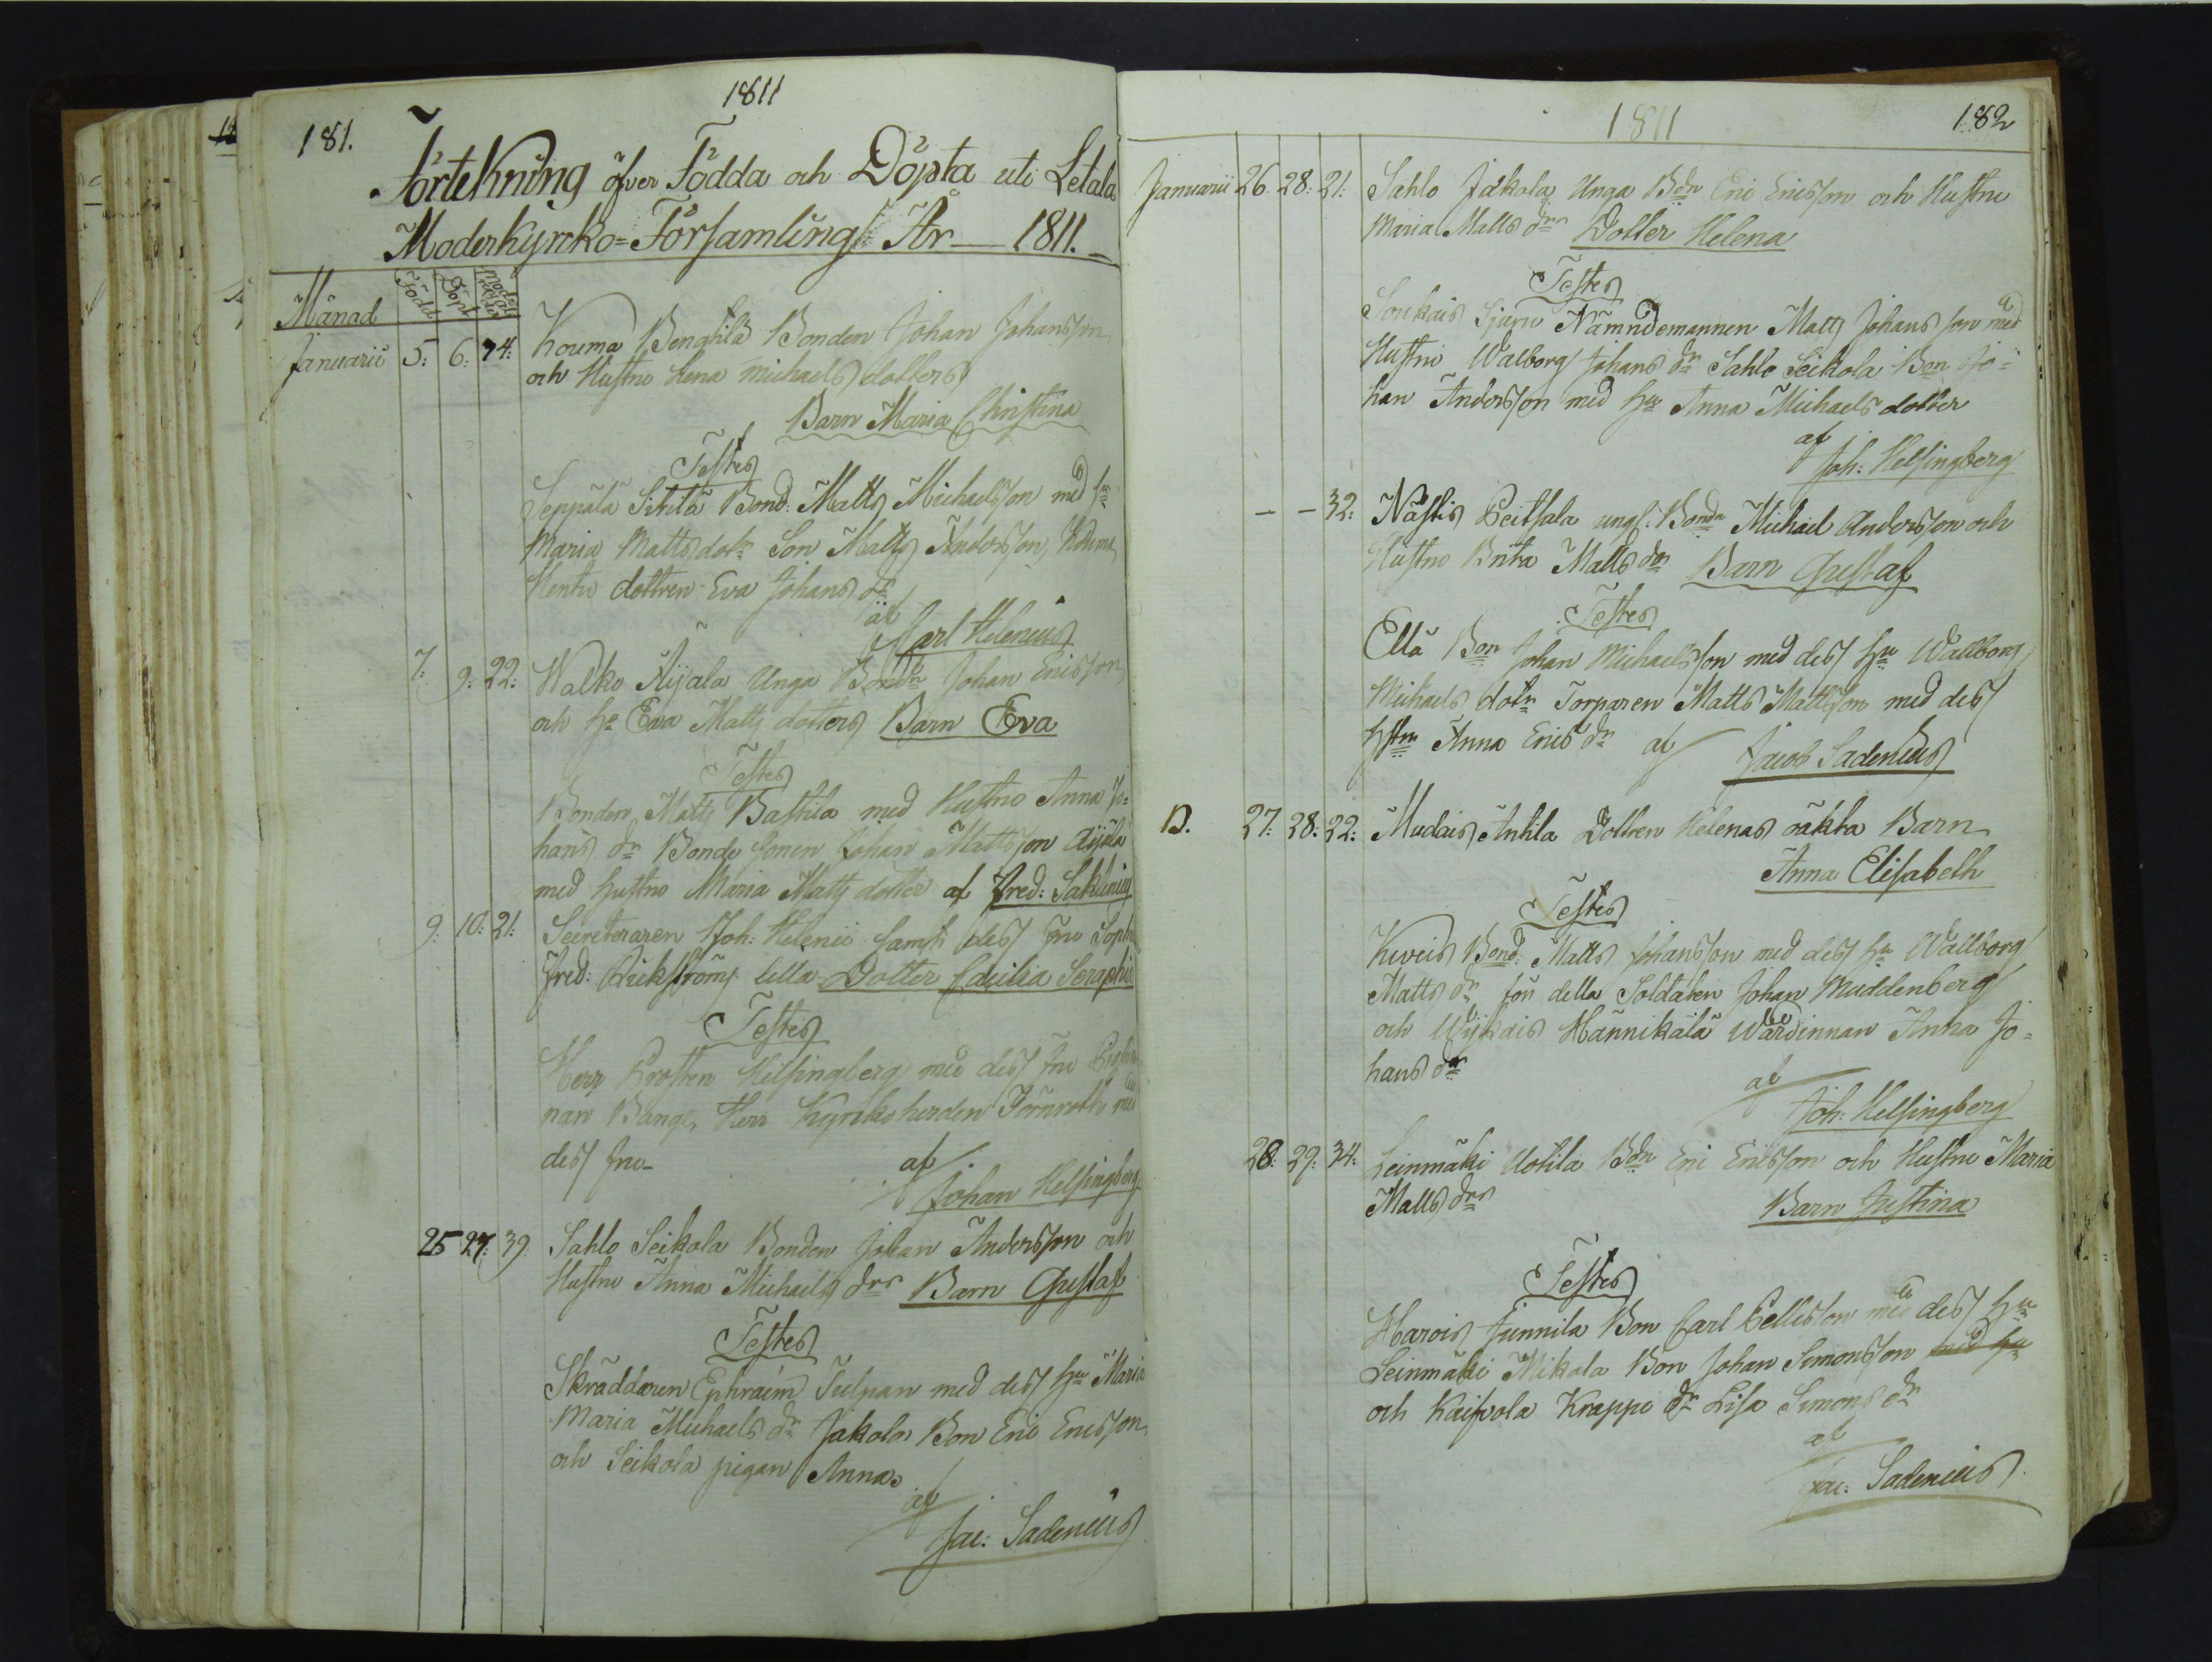 1811
181.
Förtekning öfver Födda och Döpta uti Letala
Moderkyrcko=Församling År 1811.
Månad Född Döpt
Januarii 5: 6: 74: Kouma Bengtilä Bonden Johan Johansson
och Hustru Lena Michaels dotters
Barn Maria Christina
Testes
Seppälä Sihtilä Bond: Matts Michaelsson med hu
Maria Mattsdotr Son Matts Andersson, Kouma
Henttu dottren Eva Johans dr
af
Carl Helenius
7: 9: 22: Walko Äijälä Unga Bondn Johan Ericsson
och hu Eva Matts dotters Barn Eva
Testes
Bonden Matts Bastila med Hustru Anna Jo=
hans dr Bonde Sonen Johan Mattsson Äijälä
med hustru Maria Matts dotter af Fred: Sahlenius
9: 10: 21: Secreteraren Joh: Helenii samt des fru Soph
Fred: lilla Dotter Cæcilia Seraphi
Testes
Herr Prosten Helsingberg med des fru
nan Bange, Herr Kyrkoherden Törnroth med
des fru
af
Johan Helsingberg
25 27: 39. Sahlo Seikola Bonden Johan Andersson och
Hustru Anna Michaels drs Barn Gustaf
Testes
Skräddaren Ephraim Tulpan med des hu Maria
Maria Michaels dr Jakola Bon Eric Ericsson
och Seikola pigan Anna.
af
Jac: Sadenius
1811
182
Januarii 26 28: 21: Sahlo Jakola Unga Bdn Eric Ericsson och Hustru
Maria Matts drs Dotter Helena
Testes
Soukais Sjuru Nämndemannen Matts Johansson med
Hustru Walborg Johans dr Sahlo Seikola Bon Jo=
han Andersson med hu Anna Michaels dotter
af
Joh: Helsingberg
– – 32: Nästis Peitsala ung: Bondn Michael Andersson och
Hustru Brita Matts drs Barn Gustaf
Testes
Ellä Bon Johan Michaelsson med des hu Wallborg
Michaels dotr Torparen Matts Mattsson med des
hstru Anna Erics dr af
Jacob Sadenius
D. 27: 28: 22: Mudais Anttila Dottren Helenas oäkta Barn
Anna Elisabeth
Testes
Kiveis Bond: Matts Johansson med des hu Wallborg
Matts dr för detta Soldaten Johan Muddenberg
och Wijkais Hännikälä Wärdinnan Anna Jo=
hans dr
af
Joh: Helsingberg
28: 29: 34: Leinmäki Uotila Bdn Eric Ericsson och Hustru Maria
Matts drs
Barn Justina
Testes
Harois Junnila Bon Carl Pellesson med des hu
Leinmäki Mikola Bon Johan Simonsson med hu
och Kaivola Krappe dr Lisa Simons dr
af
Jac: Sadenius